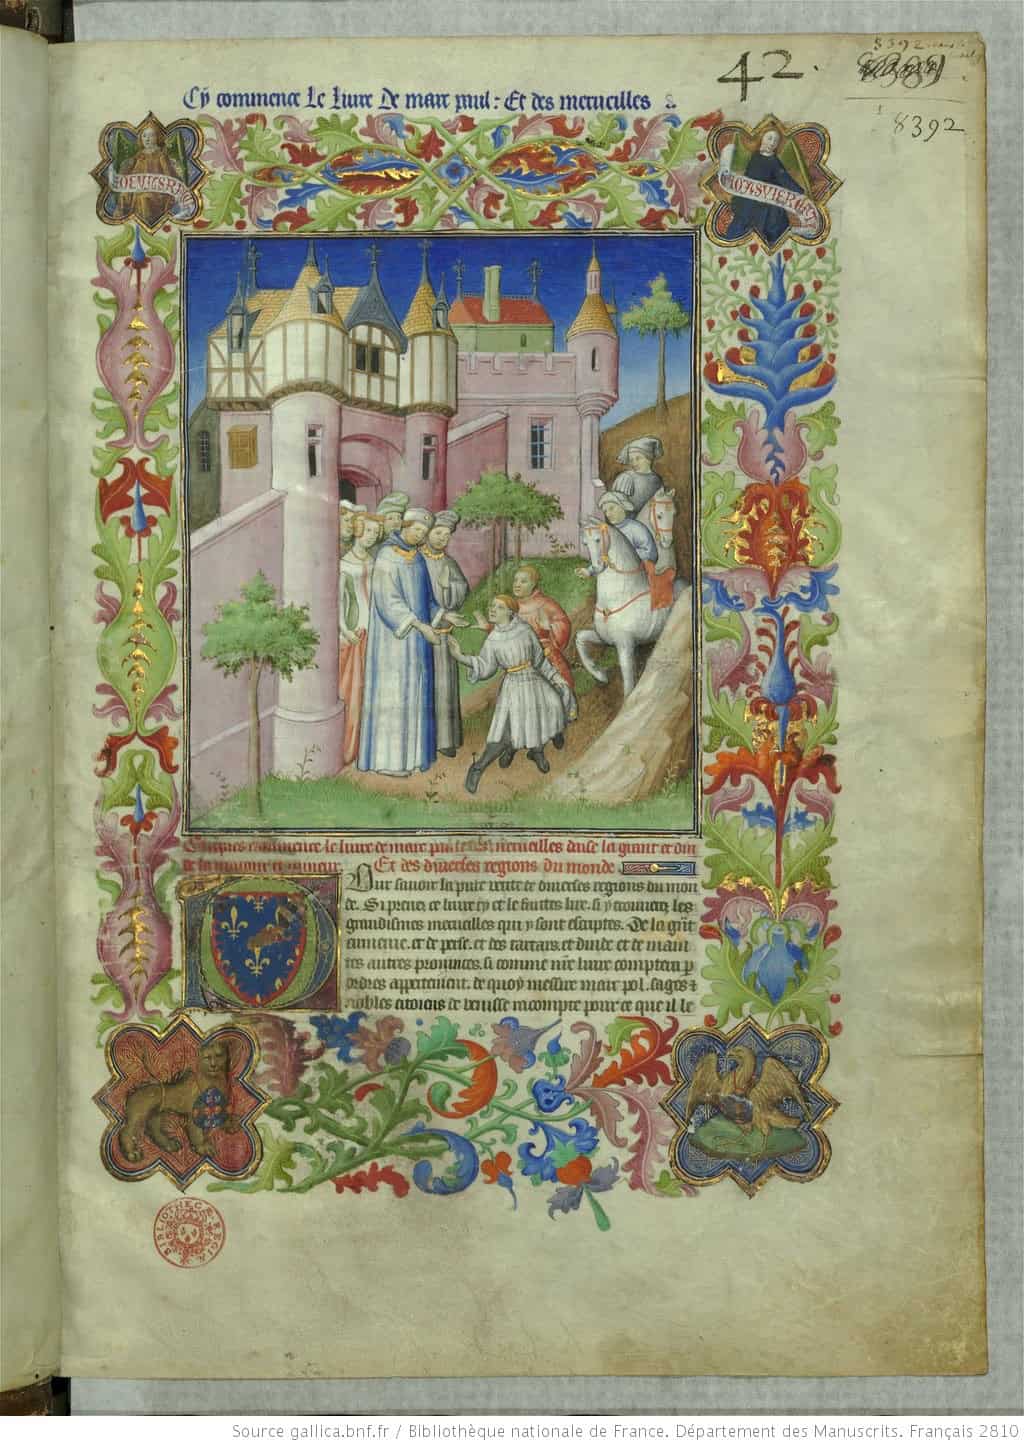 42.
8392
8392
Cy commence le liure de marc paul : Et des merueilles
Cy apres commence le liure de marc paul des merueilles daise la grant et din
de la maiour et mineur Et des diuerses regions du monde
Pour sauoir la pure verite de diuerses regions du mon
de. Si prenez ce liure cy et le faittes lire. si y trouuerez les
grandismes merueilles qui y sont escriptes. De la grāt
armenie. et de perse. et des tartars. et dinde. et de main
tes autres prouinces. si comme nr̄e liure comptera p
ordres appertement. de quoy messire marc pol. sages ⁊
nobles citoiens de venisse racompte pour ce que il le
BIBLIOTHECÆ REGIÆ
Source gallica.bnf.fr / Bibliothèque nationale de France. Département des Manuscrits. Français 2810